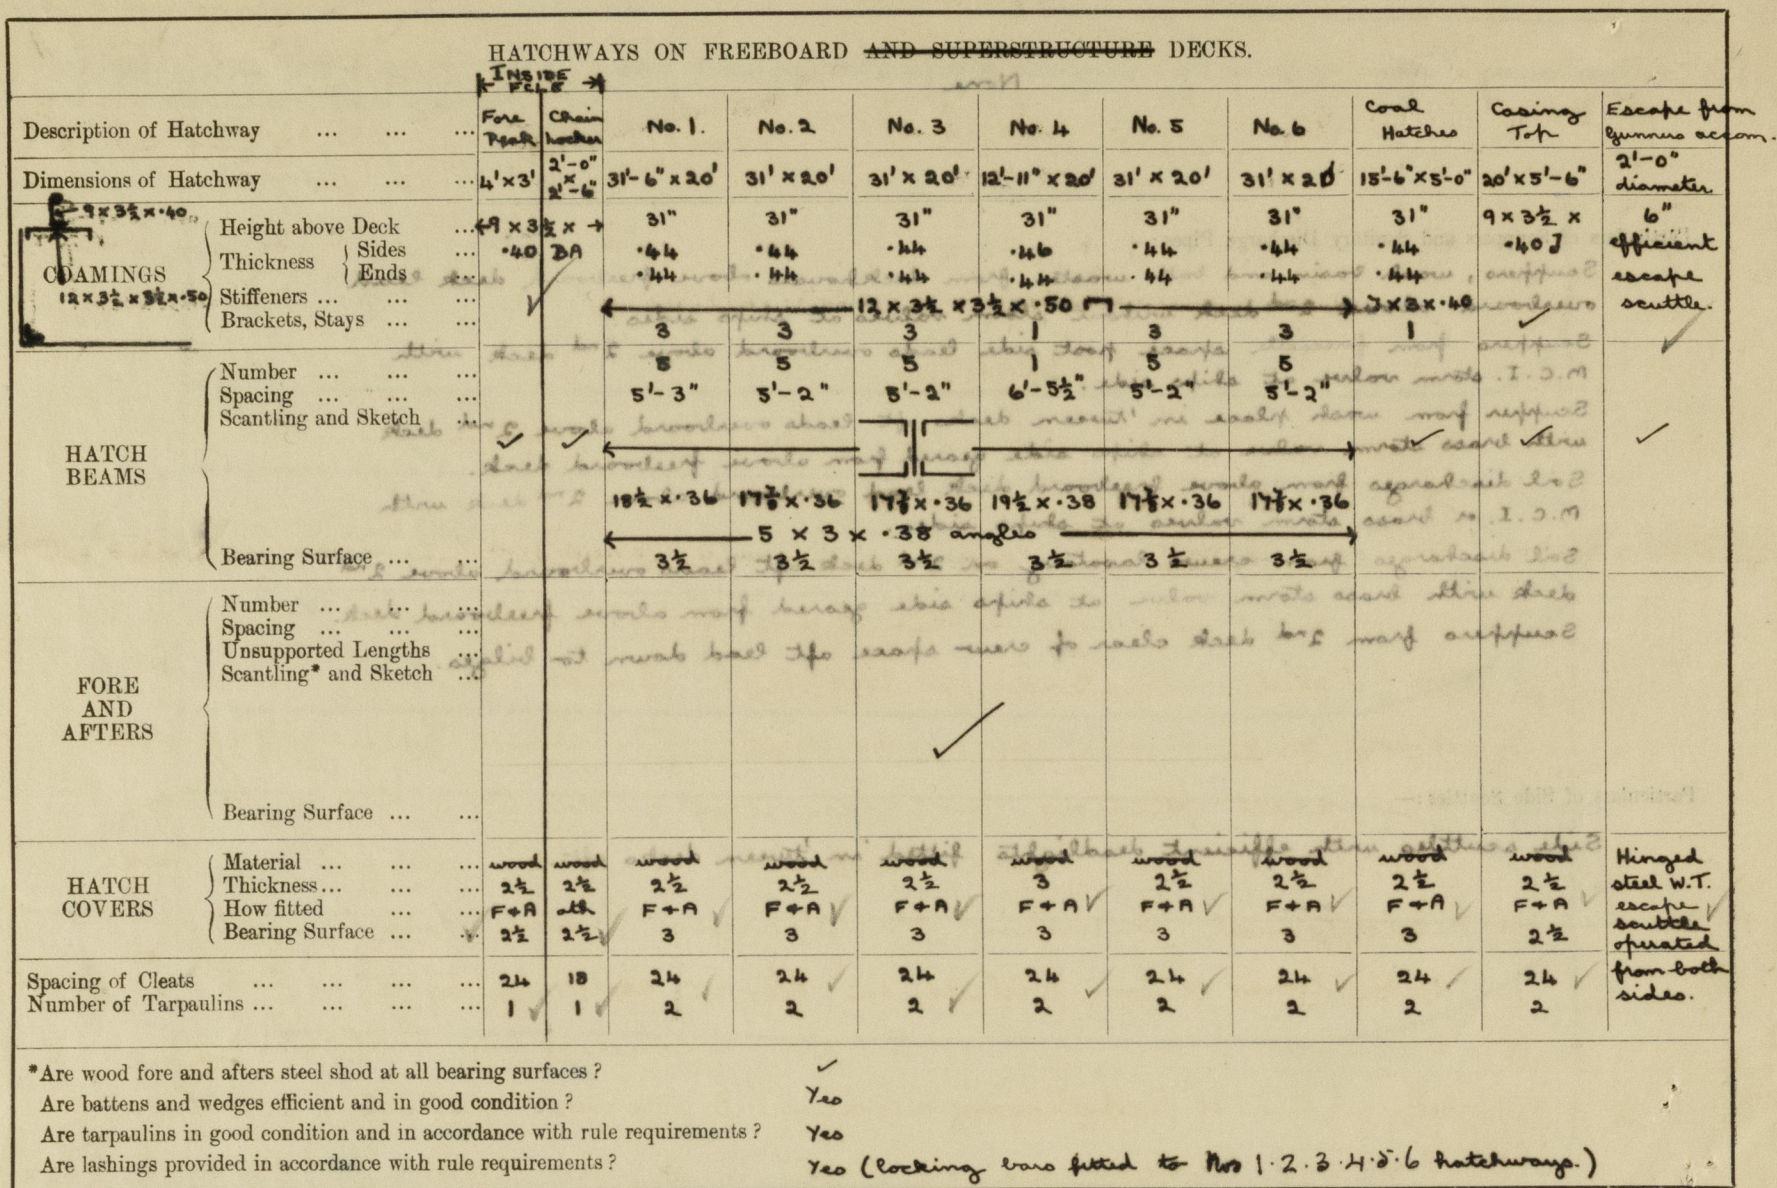 HATCHWAYS ON FREEBOARD AND SUPERSTRUCTURE DECKS.
INSIDE
FCLE
Description of Hatchway ... ... ... Fore Peak Chain Locker No. 1. No. 2 No. 3 No. 4 No. 5 No. 6 Coal Hatches Casing Top Escape from Gunners accom.
Dimensions of Hatchway ... ... ... 4'×3' 2'-0" × 2'-6" 31'-6" × 20' 31' × 20' 31' × 20' 12'-11" × 20' 31' × 20' 31' × 20' 15'-6" × 5'-0" 20' × 5'-6" 2'-0" diameter
9 × 3½ × ·40
COAMINGS
12 × 3½ × 3½ × ·50
Height above Deck ... 9 × 3½ × 31" 31" 31" 31" 31" 31" 31" 9 × 3½ × 6"
Thickness Sides ... ·40 BA ·44 ·44 ·44 ·46 ·44 ·44 ·44 ·40 efficient
Ends ... ·44 ·44 ·44 ·44 ·44 ·44 ·44 escape
Stiffeners ... ... ... 12 × 3½ × 3½ × ·50 7×3×·40 scuttle.
Brackets, Stays ... ... 3 3 3 1 3 3 1
HATCH BEAMS
Number ... ... ... 5 5 5 1 5 5
Spacing ... ... ... 5'-3" 5'-2" 5'-2" 6'-5½" 5'-2" 5'-2"
Scantling and Sketch ...
18½ × ·36 17⅞ × ·36 17⅞ × ·36 19½ × ·38 17⅞ × ·36 17⅞ × ·36
5 × 3 × ·38 angles
Bearing Surface ... ... 3½ 3½ 3½ 3½ 3½ 3½
FORE AND AFTERS
Number ... ... ...
Spacing ... ... ...
Unsupported Lengths ...
Scantling* and Sketch ...
Bearing Surface ... ...
HATCH COVERS
Material ... ... ... wood wood wood wood wood wood wood wood wood wood Hinged
Thickness... ... ... 2½ 2½ 2½ 2½ 2½ 3 2½ 2½ 2½ 2½ steel W.T.
How fitted ... ... F+A ath F+A F+A F+A F+A F+A F+A F+A F+A escape
Bearing Surface ... ... 2½ 2½ 3 3 3 3 3 3 3 2½ scuttle operated
Spacing of Cleats ... ... ... ... 24 18 24 24 24 24 24 24 24 24 from both
Number of Tarpaulins ... ... ... ... 1 1 2 2 2 2 2 2 2 2 sides.
*Are wood fore and afters steel shod at all bearing surfaces ? ✓
Are battens and wedges efficient and in good condition ? Yes
Are tarpaulins in good condition and in accordance with rule requirements ? Yes
Are lashings provided in accordance with rule requirements ? Yes (locking bars fitted to Nos 1·2·3·4·5·6 hatchways.)